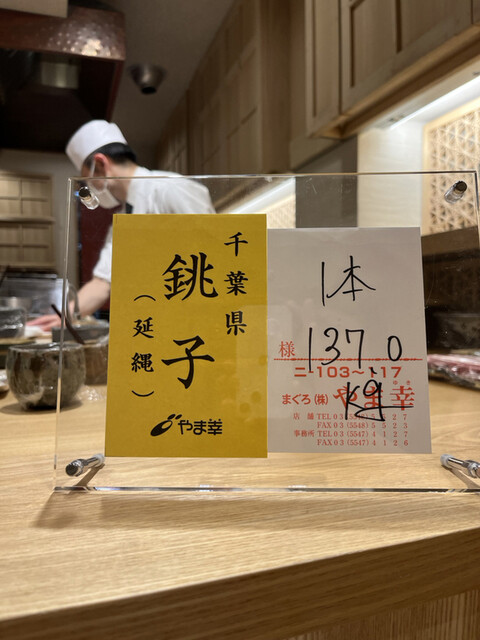 千葉県
銚子
（延縄）
やま幸
1本
様 137.0
ニー103〜117
kg
まぐろ（株）やま幸
店舗 TEL03(5548)5527
FAX03(5548)5523
事務所 TEL03(5547)4127
FAX03(5547)4126